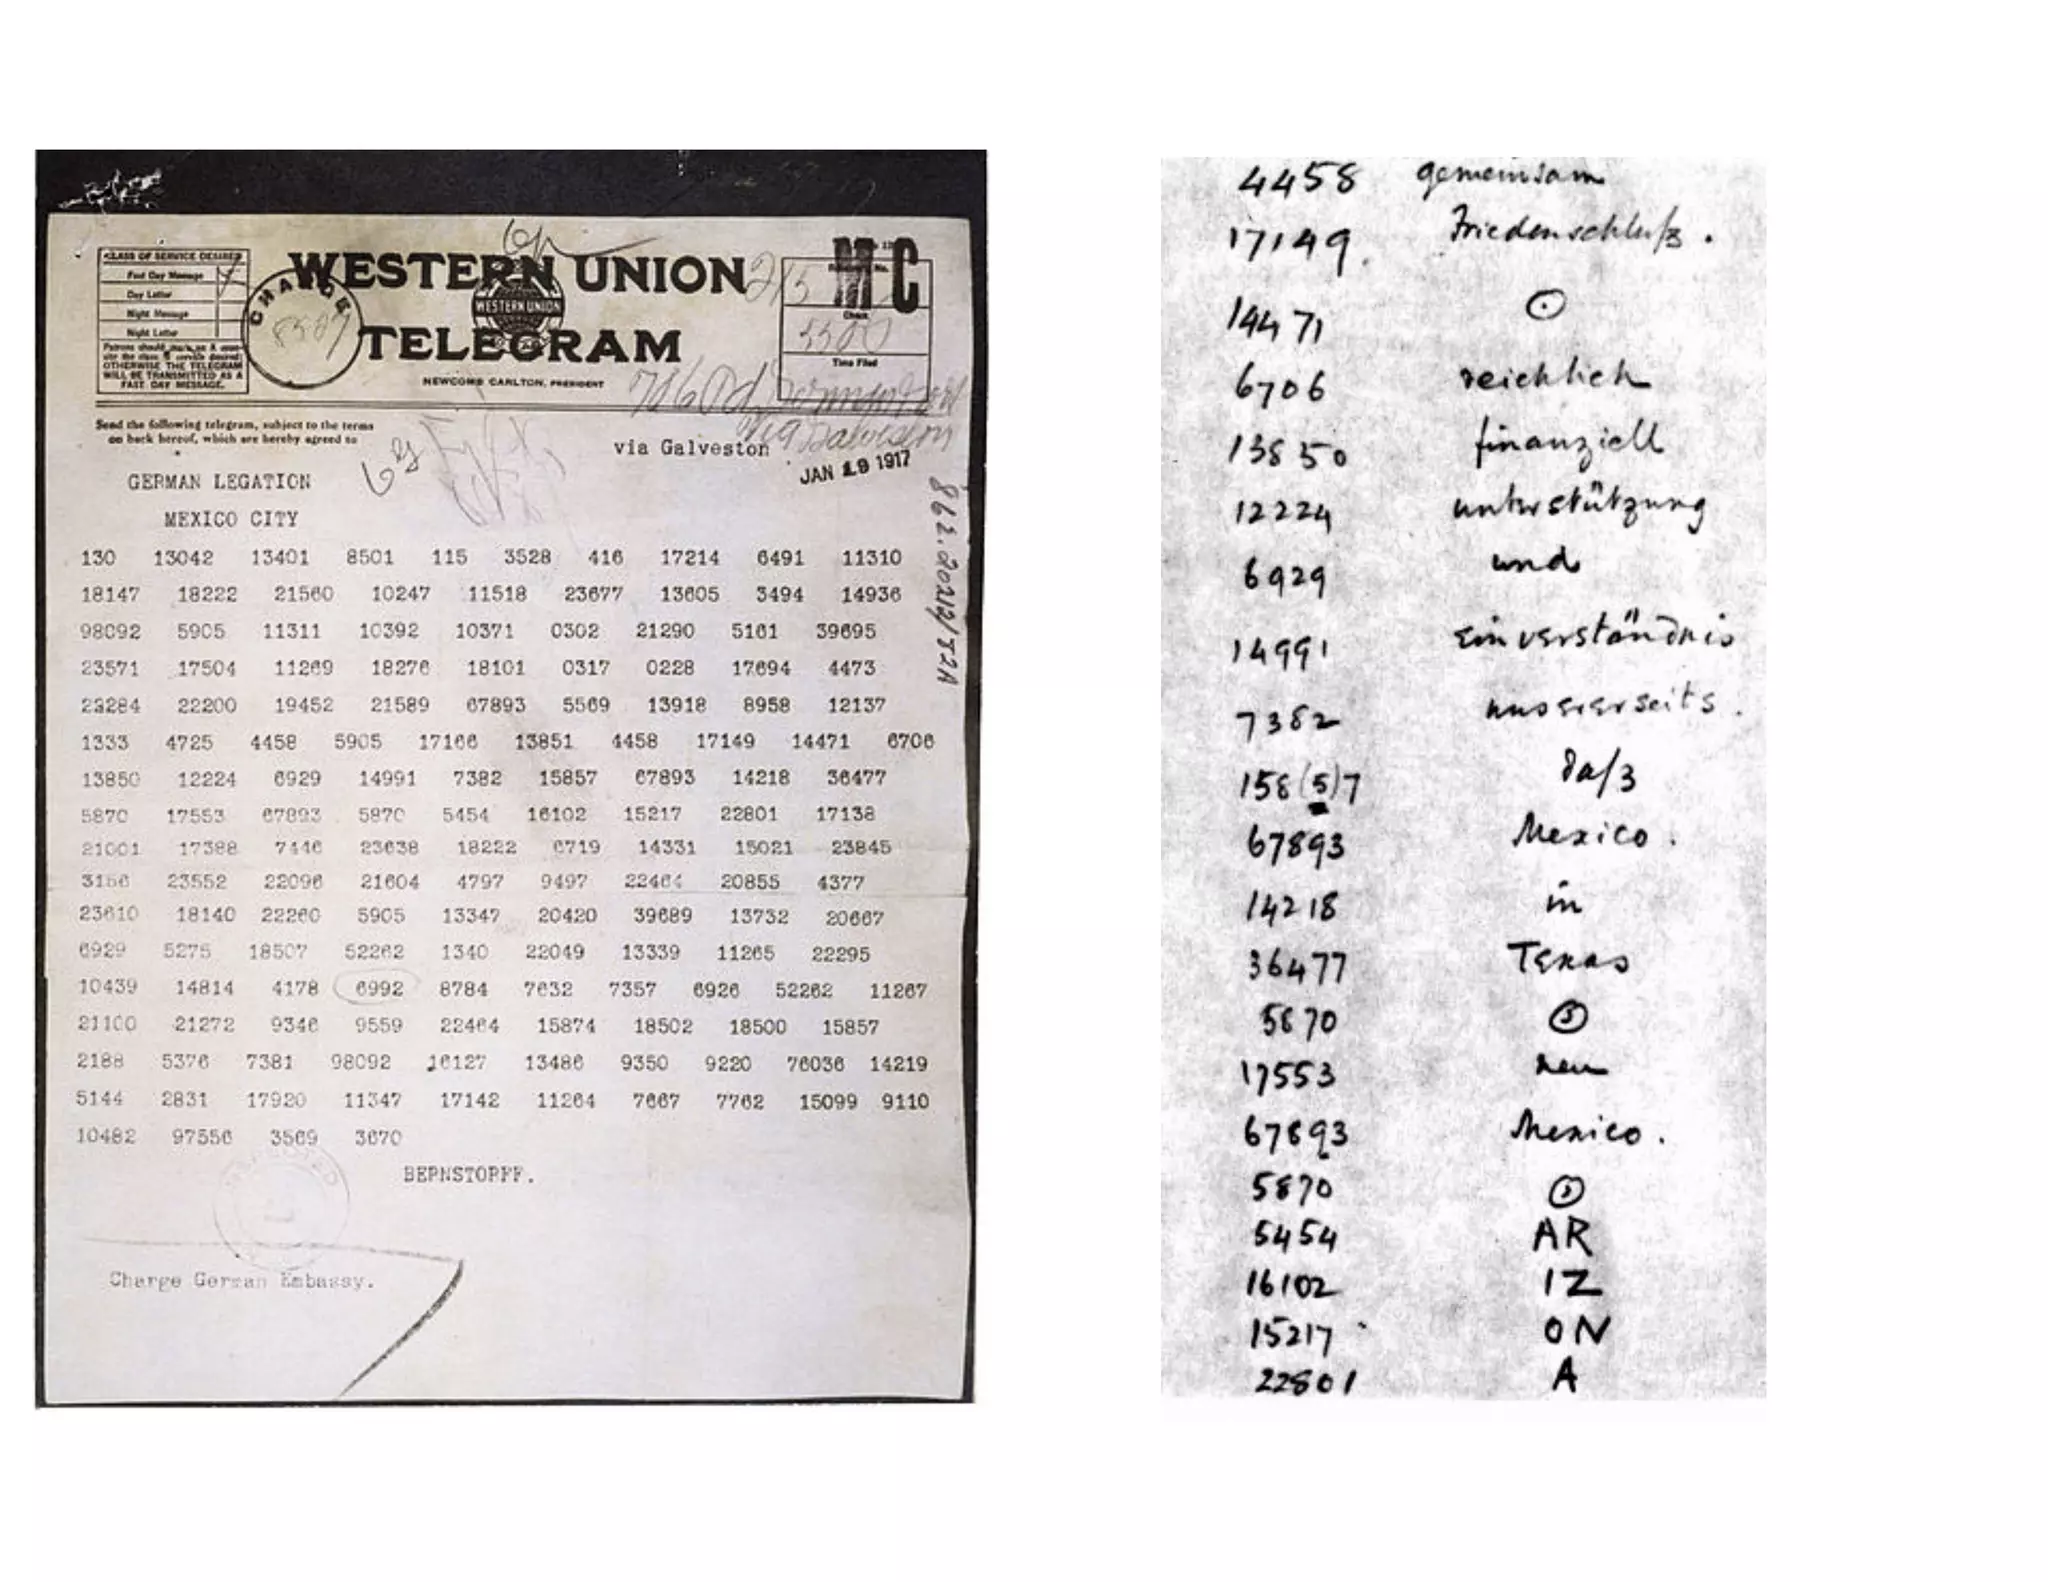 CLASS OF SERVICE DESIRED
Fast Day Message
Day Letter
Night Message
Night Letter
Patrons should mark an X oppo-
site the class of service desired;
OTHERWISE THE TELEGRAM
WILL BE TRANSMITTED AS A
FAST DAY MESSAGE.
CHARGE
WESTERN UNION
WESTERN UNION
TELEGRAM
NEWCOMB CARLTON, PRESIDENT
MC
Check
Time Filed
Send the following telegram, subject to the terms
on back hereof, which are hereby agreed to
via Galveston
via Galveston
JAN 19 1917
GERMAN LEGATION
MEXICO CITY
862.20212/82A
130 13042 13401 8501 115 3528 416 17214 6491 11310
18147 18222 21560 10247 11518 23677 13605 3494 14936
98092 5905 11311 10392 10371 0302 21290 5161 39695
23571 17504 11269 18276 18101 0317 0228 17694 4473
22284 22200 19452 21589 67893 5569 13918 8958 12137
1333 4725 4458 5905 17166 13851 4458 17149 14471 6706
13850 12224 6929 14991 7382 15857 67893 14218 36477
5870 17553 67893 5870 5454 16102 15217 22801 17138
21001 17388 7446 23638 18222 6719 14331 15021 23845
3156 23552 22096 21604 4797 9497 22464 20855 4377
23610 18140 22260 5905 13347 20420 39689 13732 20667
6929 5275 18507 52262 1340 22049 13339 11265 22295
10439 14814 4178 6992 8784 7632 7357 6926 52262 11267
21100 21272 9346 9559 22464 15874 18502 18500 15857
2188 5376 7381 98092 16127 13486 9350 9220 76036 14219
5144 2831 17920 11347 17142 11264 7667 7762 15099 9110
10482 97556 3569 3670
BERNSTORFF.
Charge German Embassy.
4458 gemeinsam
17149. Friedenschluß.
14471 ⊙
6706 reichlich
13850 finanziell
12224 unterstützung
6929 und
14991 einverständnis
7382 unsererseits.
158(5)7 daß
67893 Mexico.
14218 in
36477 Texas
5870 ⊙
17553 neu
67893 Mexico.
5870 ⊙
5454 AR
16102 IZ
15217 ON
22801 A